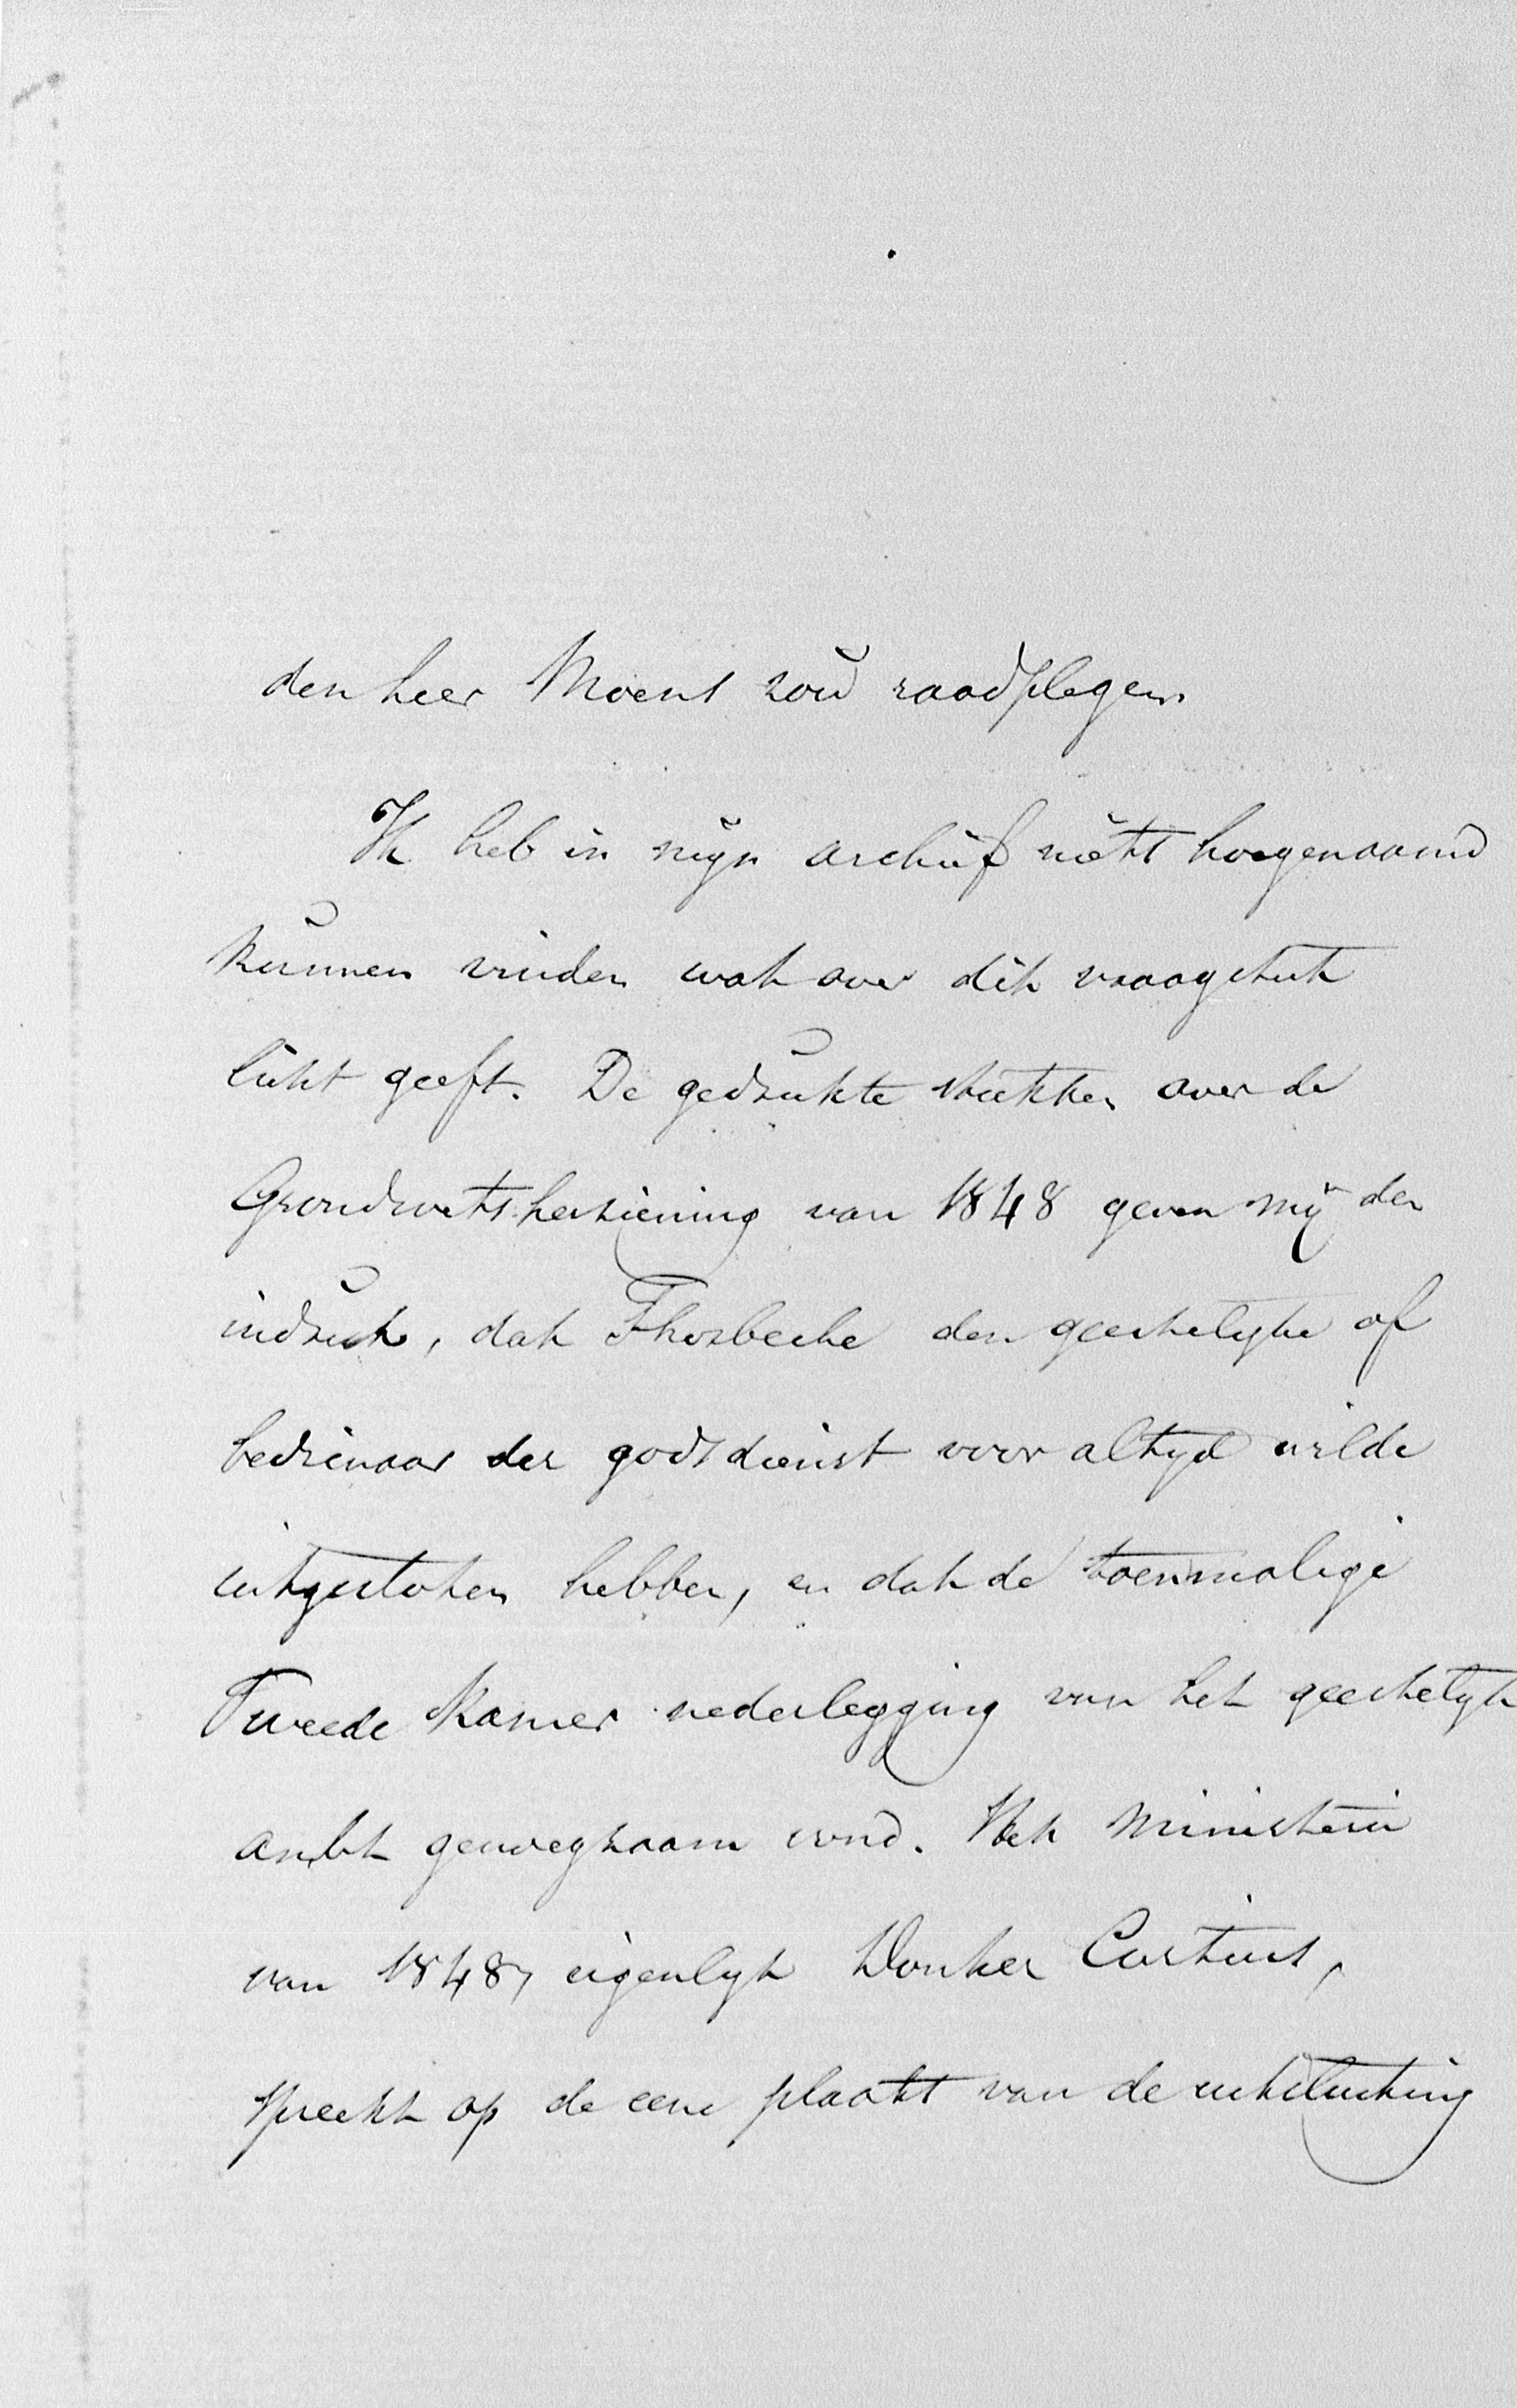 den heer Moens zou raadplegen.
Ik heb in mijn archief niets hoegenaamd
kunnen vinden wat over dit vraagstuk
licht geeft. De gedrukte stukken over de
Grondwetsherziening van 1848 geven mij den
indruk, dat Thorbecke den geestelijke of
bedienaar der godsdienst voor altijd wilde
uitgesloten hebben, en dat de toenmalige
Tweede Kamer nederlegging van het geestelijk
ambt genoegzaam vond. Het ministerie
van 1848, eigenlijk Donker Curtius,
spreekt op de eene plaats van de uitsluiting